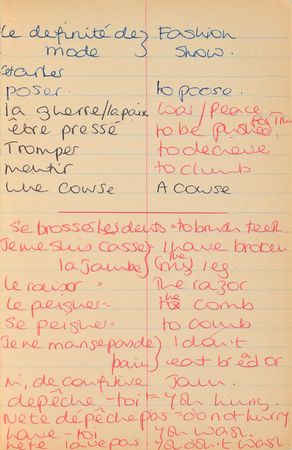 le definité de } Fashion
mode } Show.
Cétarles
poser. to poose.
la guerre/la paix War/Peace
être pressé to be pushed. for Tim
Tromper to decieve
mentir to climb
une cowse A cowse
Se brosses les dents = to brush teeth.
Je me suis casse } I have brocen
la jambe } the my leg.
Le rasor = The razor
Le peigner = the comb
Se peigner = to comb
Je ne manse pas de } I don't
pain } eat bread or
ni, de confiture Jam.
depêche-toi = You hurry.
Ne te dépêche pas = do not hurry
lave-toi You wash.
ne te lave pas You don't wash.